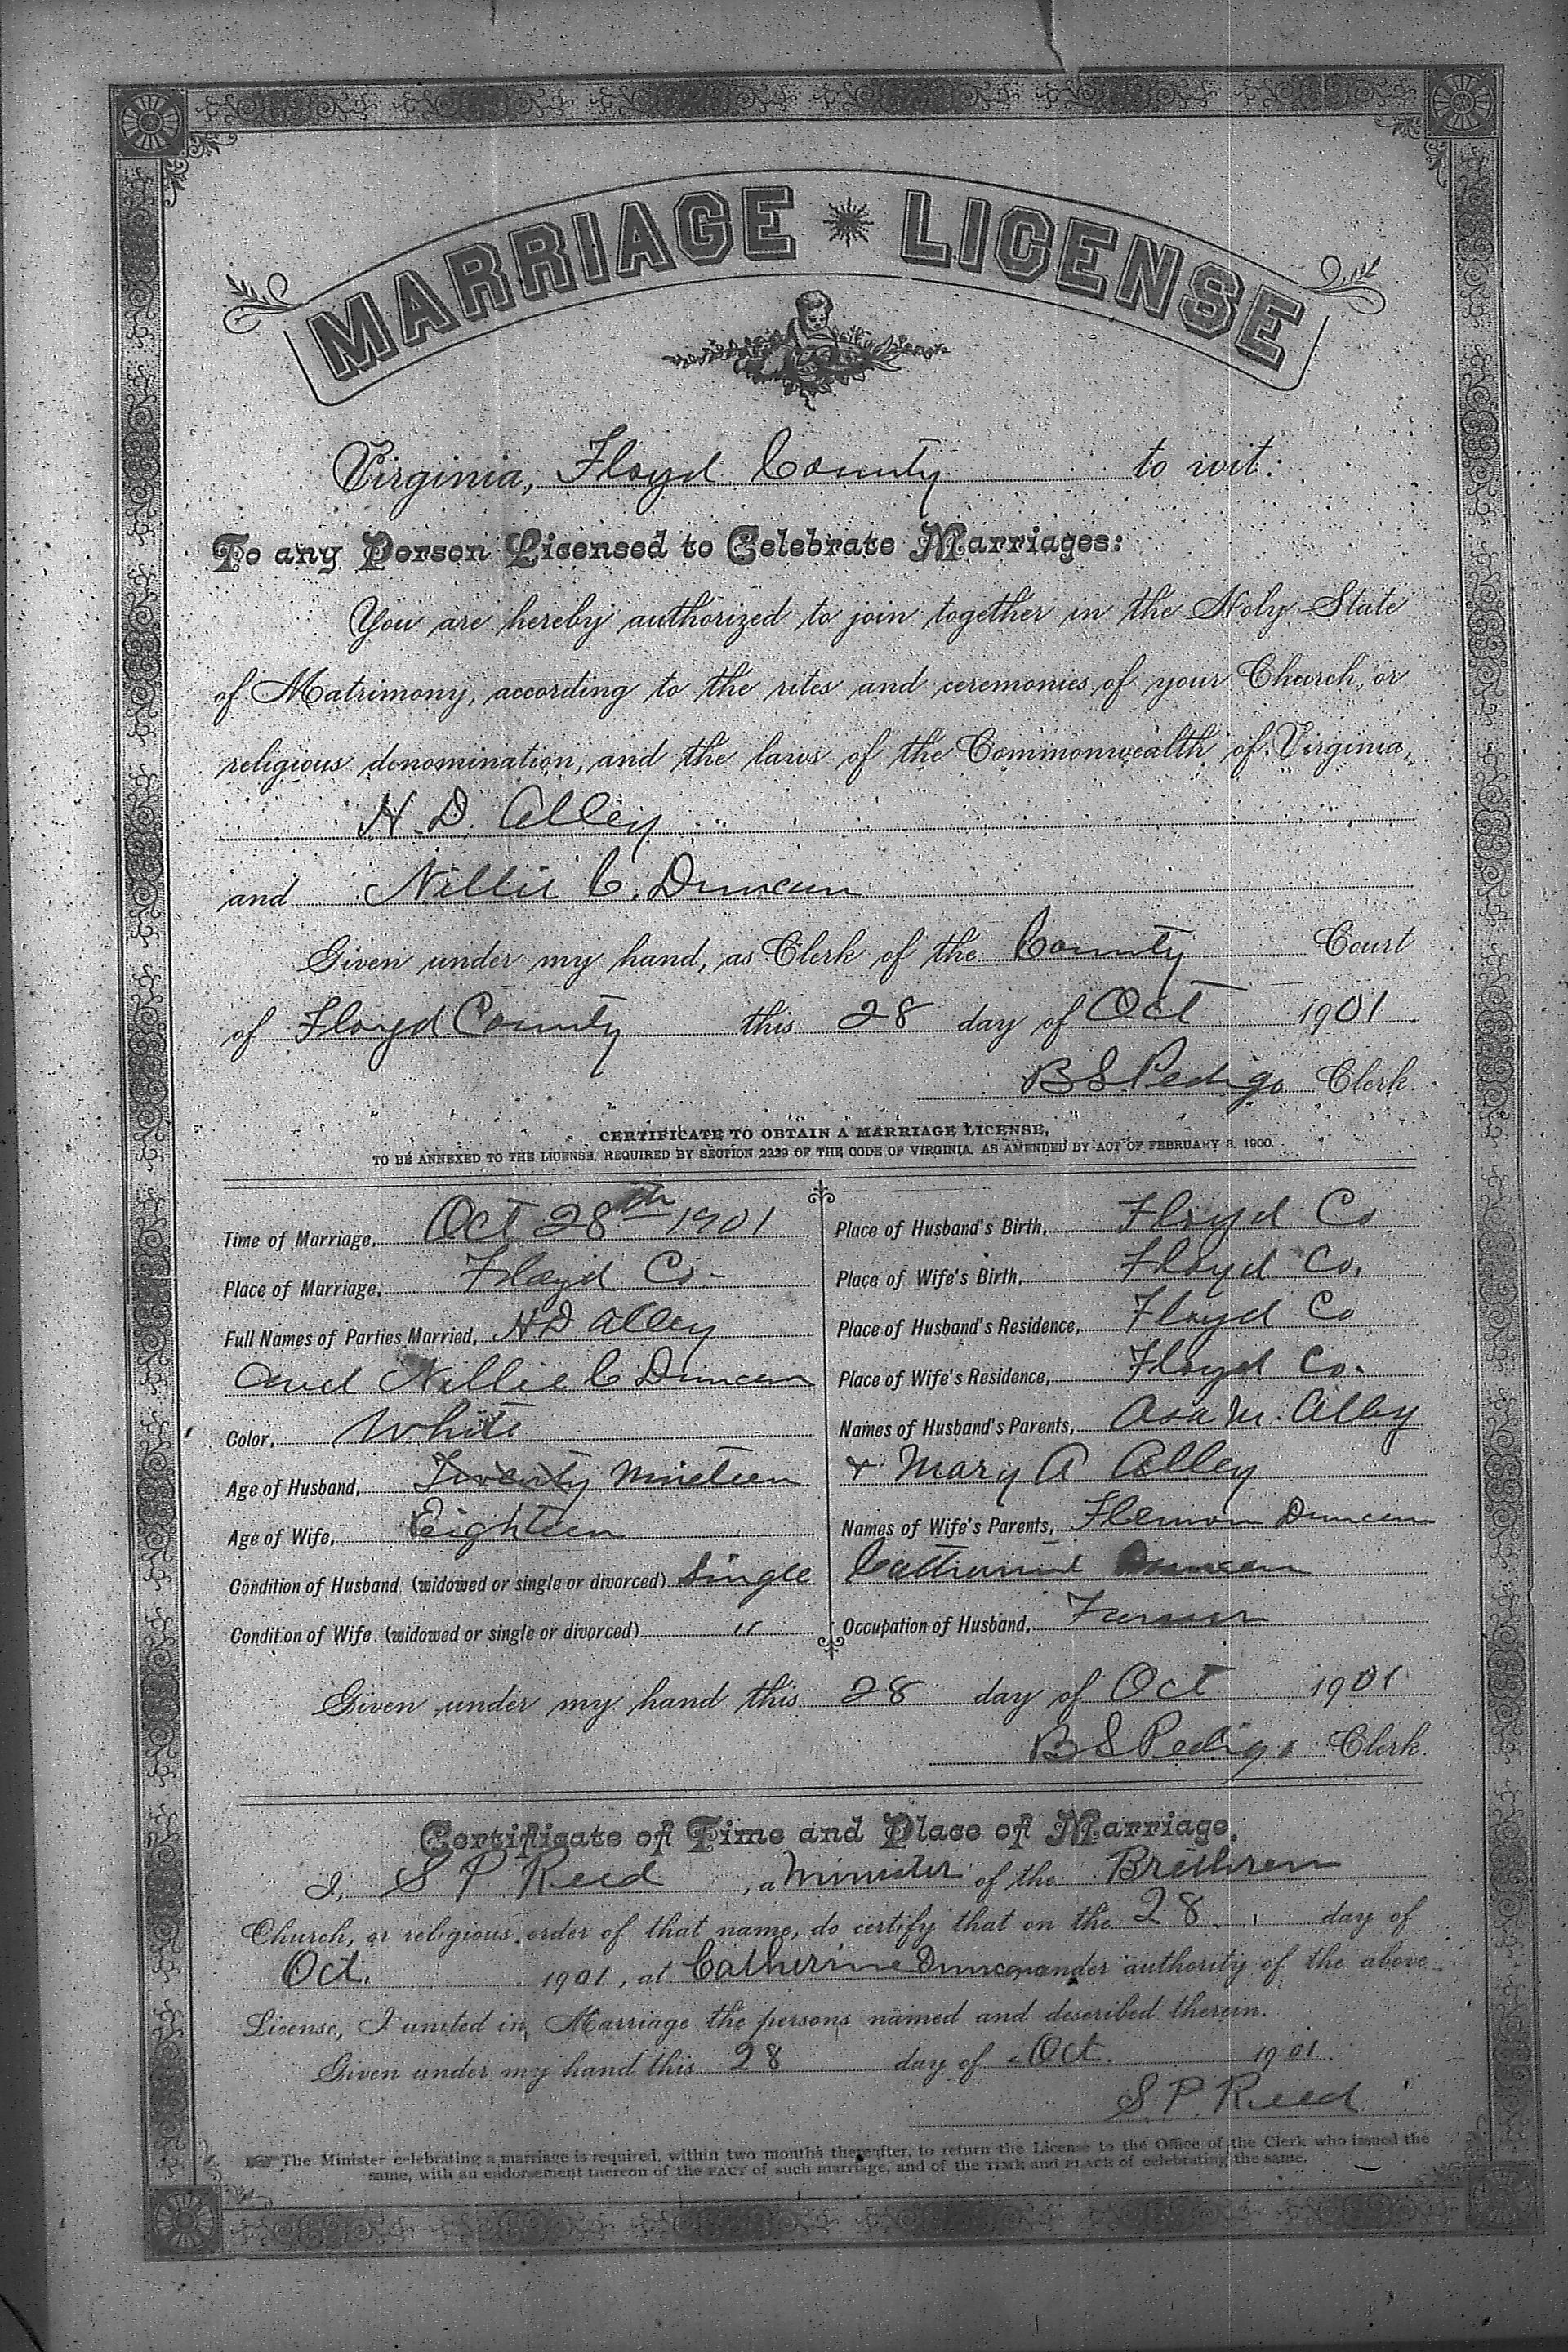 MARRIAGE LICENSE
Virginia, Floyd County to wit:
To any Person Licensed to Celebrate Marriages:
You are hereby authorized to join together in the Holy State
of Matrimony, according to the rites and ceremonies of your Church, or
religious denomination, and the laws of the Commonwealth of Virginia,
H. D. Alley
and Nillie C. Duncan
Given under my hand, as Clerk of the County Court
of Floyd County this 28 day of Oct 1901
B S Pedigo Clerk.
CERTIFICATE TO OBTAIN A MARRIAGE LICENSE,
TO BE ANNEXED TO THE LICENSE, REQUIRED BY SECTION 2229 OF THE CODE OF VIRGINIA, AS AMENDED BY ACT OF FEBRUARY 3, 1900.
Time of Marriage, Oct 28th 1901
Place of Marriage, Floyd Co-
Full Names of Parties Married, H D Alley
and Nillie C Duncan
Color, White
Age of Husband, Twenty Nineteen
Age of Wife, Eighteen
Condition of Husband (widowed or single or divorced) Single
Condition of Wife (widowed or single or divorced) "
Place of Husband's Birth, Floyd Co
Place of Wife's Birth, Floyd Co.
Place of Husband's Residence, Floyd Co
Place of Wife's Residence, Floyd Co.
Names of Husband's Parents, Asa M. Alley
+ Mary A Alley
Names of Wife's Parents, Flemon Duncan
Catharine Duncan
Occupation of Husband, Farmer
Given under my hand this 28 day of Oct 1901
B S Pedigo Clerk.
Certificate of Time and Place of Marriage.
I, S P Reed, a Minister of the Brethren
Church, or religious order of that name, do certify that on the 28 day of
Oct. 1901, at Catherine Duncan under authority of the above
License, I united in Marriage the persons named and described therein.
Given under my hand this 28 day of Oct. 1901.
S. P. Reed
The Minister celebrating a marriage is required, within two months thereafter, to return the License to the Office of the Clerk who issued the
same, with an endorsement thereon of the FACT of such marriage, and of the TIME and PLACE of celebrating the same.